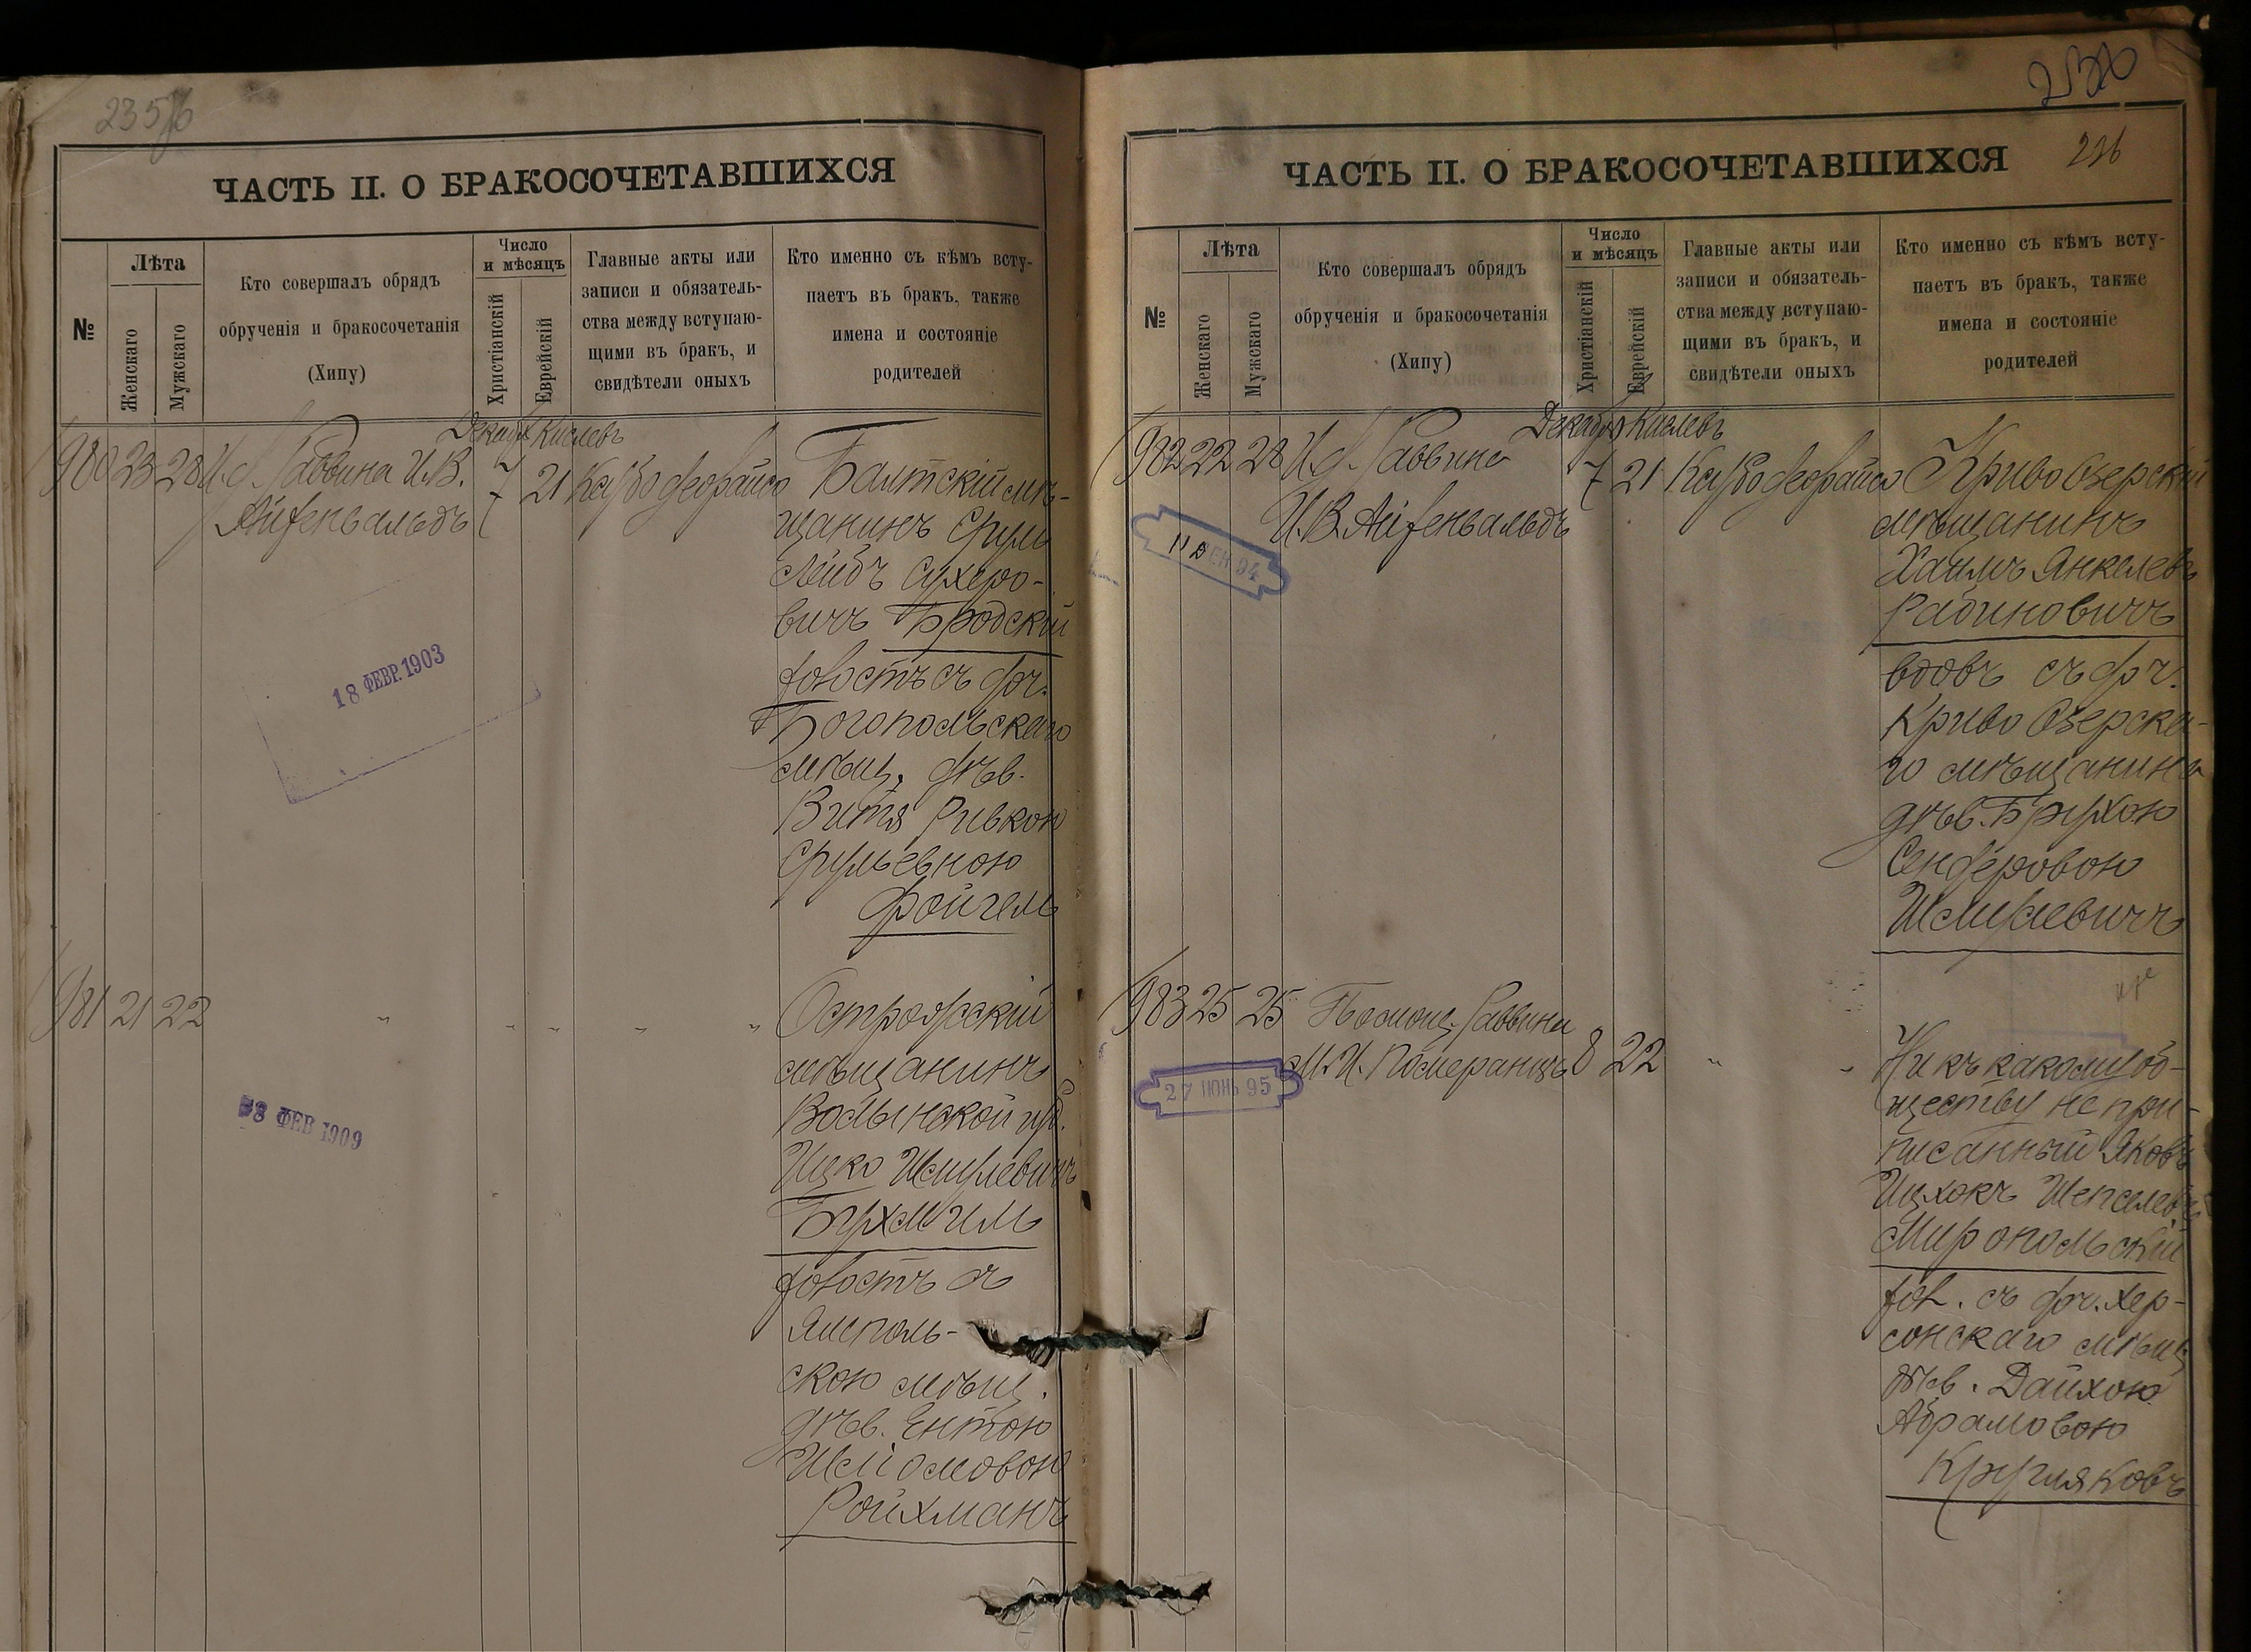 235
ЧАСТЬ II. О БРАКОСОЧЕТАВШИХСЯ
№
Лѣта
Женскаго
Мужскаго
Кто совершалъ обрядъ
обрученія и бракосочетанія
(Хипу)
Число
и мѣсяцъ
Христіанскій
Еврейскій
Главные акты или
записи и обязатель-
ства между вступаю-
щими въ бракъ, и
свидѣтели оныхъ
Кто именно съ кѣмъ всту-
паетъ въ бракъ, также
имена и состояніе
родителей
980 23 28 И. д. Раввина И.В.
Айзенвальдъ
Декабр Кислевъ
7 21
Балтскій мѣ-
щанинъ Сруль
Лейбъ Сухеро-
вичъ Бродскій
холостъ съ доч.
Богопольскаго
мѣщ. дѣв.
Витя Ривкою
Срульевною
Фойгель
18 ФЕВР. 1903
981 21 22 " " " " "
Острожскій
мѣщанинъ
Волынской губ.
Ицко Шмулевичъ
Бухмиль
холостъ съ
Ямполь-
скою мѣщ.
дѣв. Ентою
Шліомовою
Ройхманъ
8 ФЕВ 1909
226
ЧАСТЬ II. О БРАКОСОЧЕТАВШИХСЯ
№
Лѣта
Женскаго
Мужскаго
Кто совершалъ обрядъ
обрученія и бракосочетанія
(Хипу)
Число
и мѣсяцъ
Христіанскій
Еврейскій
Главные акты или
записи и обязатель-
ства между вступаю-
щими въ бракъ, и
свидѣтели оныхъ
Кто именно съ кѣмъ всту-
паетъ въ бракъ, также
имена и состояніе
родителей
982 22 28 И. д. Раввина
И.В. Айзенвальдъ
Декабр Кислевъ
7 21
Криво Озерскій
мѣщанинъ
Хаимъ Янкелевъ
Рабиновичъ
вдовъ съ доч.
Криво Озерска-
го мѣщанина
дѣв. Брухою
Сендеровою
Шмулевичъ
983 25 25 Помощ. Раввина
М. И. Померанцъ 8 22 " "
27 ІЮНЬ 95
Ни къ какому об-
ществу не при-
писанный Яковъ
Ицхокъ Шепселевъ
Миропольскій
хол. съ доч. Хер-
сонскаго мѣщ
дѣв. Дайхою
Абрамовою
Кругляковъ